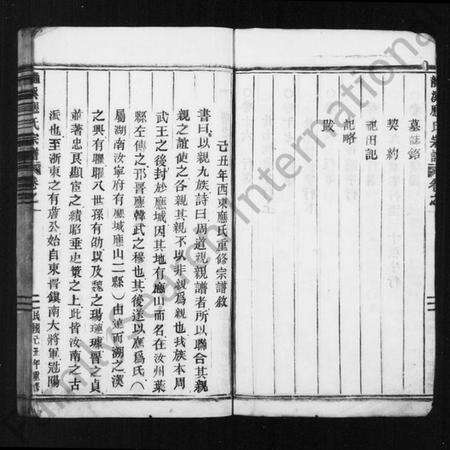 墓誌銘
契約
祀田記
記略
跋
己丑年西東應氏重修宗譜敘
書曰以親九族詩曰周道親親譜者所以聯合其親
親之誼使之各親其親不以非親為親也我族本周
武王之後封於應城因其地有應山而名在汝州葉
縣左傳之邘晉應韓武之穆也其後遂以應為氏（
屬湖南汝寧府有應城應山二縣）由連而溯之漢
之興有曜曜八世孫有劭以及魏之瑒璩璩晉之貞
並著忠良顯宦之績昭垂史策之上此皆汝南之古
派也至浙東之有應公始自東晉鎮南大將軍詹陽